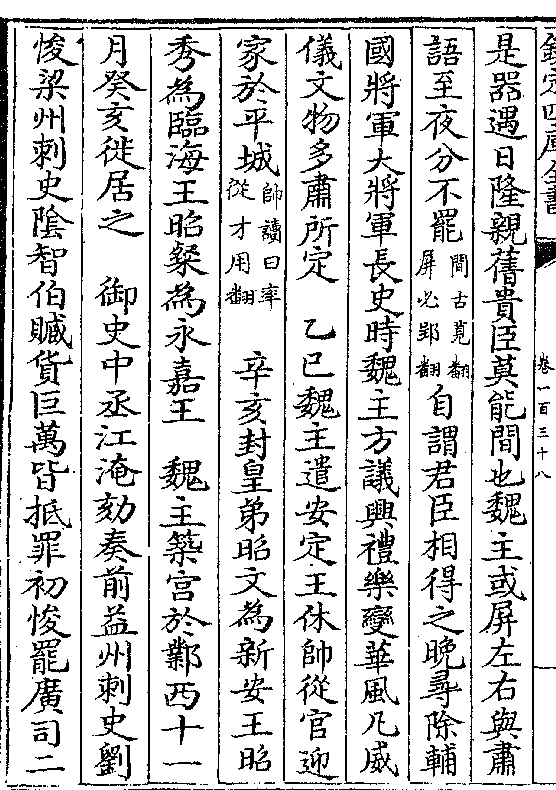 欽定四庫全書
卷一百三十八
是器遇日隆親舊貴臣莫能間也魏主或屏左右與肅
語至夜分不罷間古莧翻屏必郢翻自謂君臣相得之晚尋除輔
國將軍大將軍長史時魏主方議興禮樂變華風凡威
儀文物多肅所定　乙巳魏主遣安定王休帥從官迎
家於平城帥讀曰率從才用翻　辛亥封皇弟昭文為新安王昭
秀為臨海王昭粲為永嘉王　魏主築宫於鄴西十一
月癸亥徙居之　御史中丞江淹劾奏前益州刺史劉
悛梁州刺史隂智伯贓貨巨萬皆抵罪初悛罷廣司二